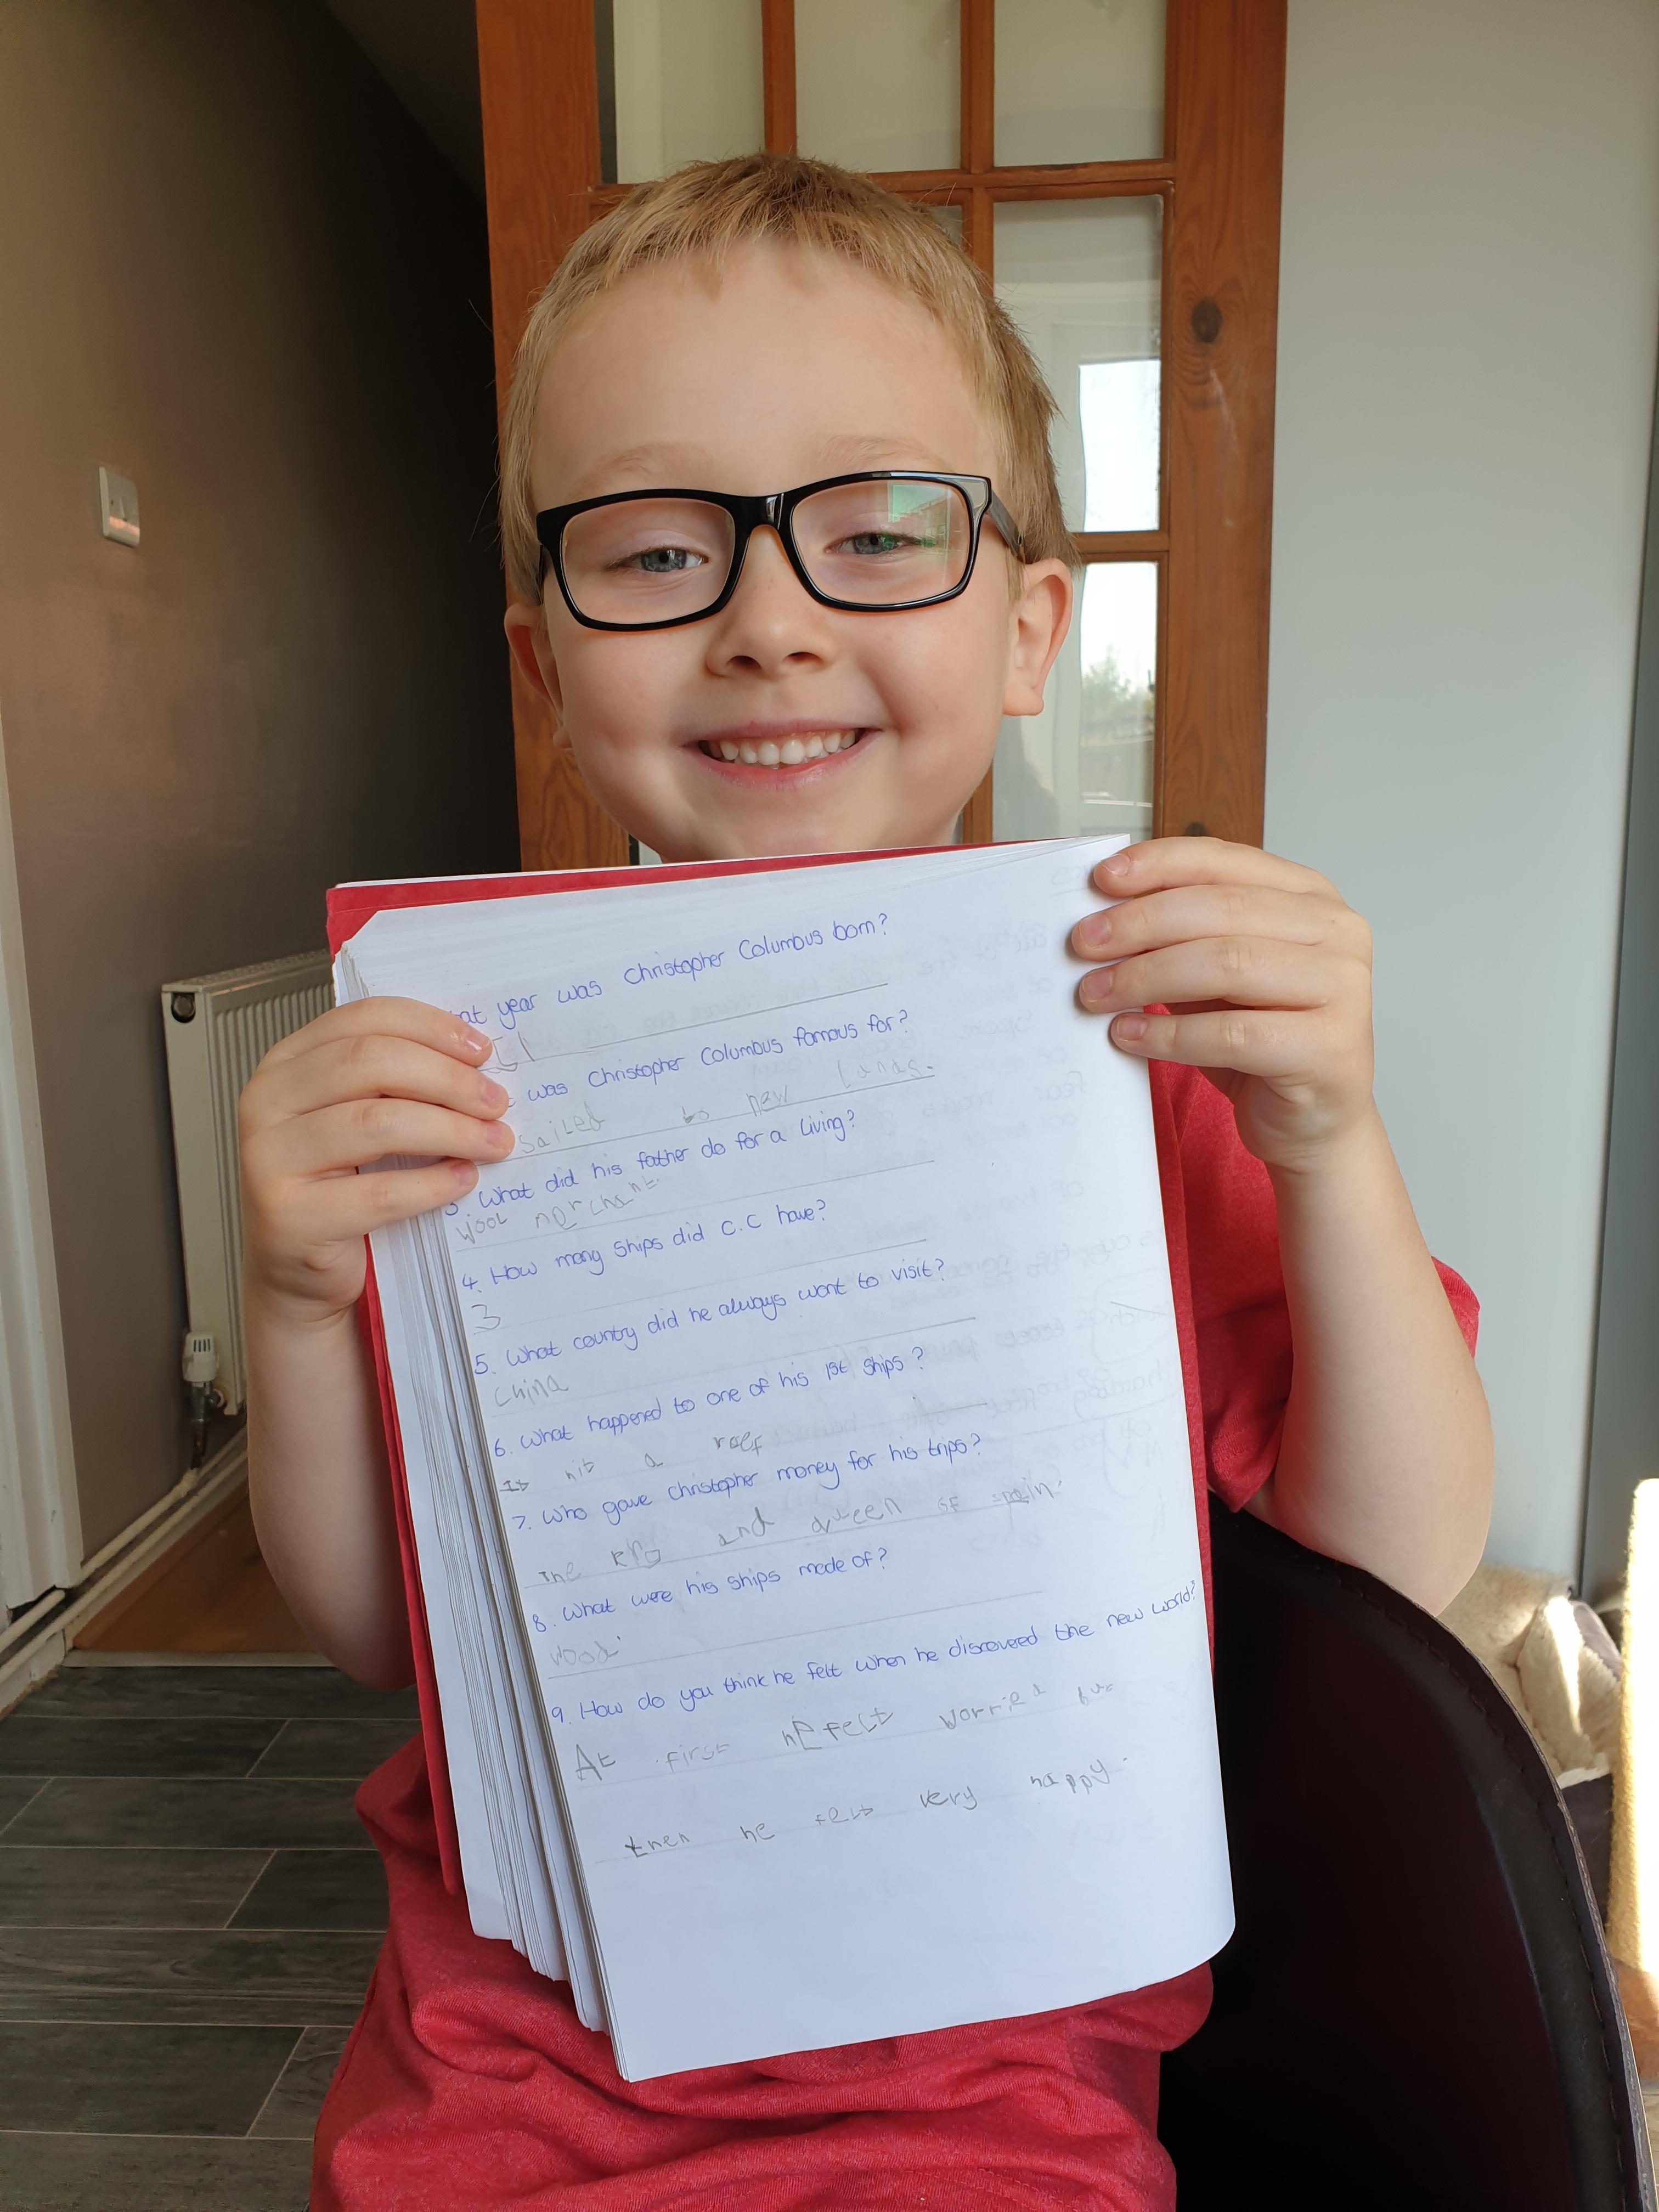 year was Christopher Columbus born?
was Christopher Columbus famous for?
sailed to new lands.
What did his father do for a living?
wool nerchant.
4. How many ships did C.C have?
3
5. What country did he always want to visit?
China
6. What happened to one of his 1st ships?
It hit a roef
7. Who gave christopher money for his trips?
The and queen of spain.
8. What were his ships made of?
wood.
9. How do you think he felt when he discoveed the new world?
At first he felt worried but
then he felt very happy.